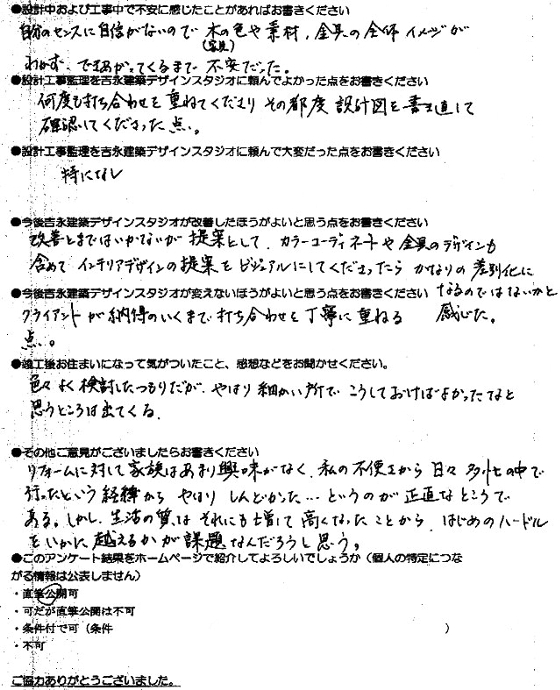 ●設計中および工事中で不安に感じたことがあればお書きください
自分のセンスに自信がないので 木の色や素材、金具の全体イメージが
(家具)
わからず、できあがってくるまで 不安だった。
●設計工事監理を吉永建築デザインスタジオに頼んでよかった点をお書きください
何度も打ち合わせを重ねてくださり その都度 設計図を書き直して
確認してくださった点。
●設計工事監理を吉永建築デザインスタジオに頼んで大変だった点をお書きください
特になし
●今後吉永建築デザインスタジオが改善したほうがよいと思う点をお書きください
改善とまではいかないが 提案として、カラーコーディネートや金具のデザインも
含めて インテリアデザインの提案を ビジュアルにしてくださったら かなりの差別化に
なるのではないかと
感じた。
●今後吉永建築デザインスタジオが変えないほうがよいと思う点をお書きください
クライアントが納得のいくまで打ち合わせを丁寧に重ねる
点。
●竣工後お住まいになって気がついたこと、感想などをお聞かせください。
色々よく検討したつもりだが、やはり細かい所で こうしておけばよかったなと
思うところは出てくる。
●その他ご意見がございましたらお書きください
リフォームに対して家族はあまり興味がなく、私の不便さから 日々多忙の中で
行ったという経緯から やはり しんどかった…というのが正直なところで
ある。しかし、生活の質は それにも増して高くなったことから、はじめのハードル
をいかに越えるかが課題なんだろうと思う。
●このアンケート結果をホームページで紹介してよろしいでしょうか（個人の特定につな
がる情報は公表しません）
・直筆公開可
・可だが直筆公開は不可
・条件付で可（条件　　　　　　　　　　）
・不可
ご協力ありがとうございました。